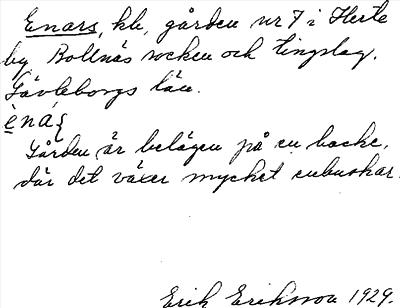 Enars, kb, gården nr 7 i Herte
by Bollnäs socken och tingslag.
Gävleborgs län.
èná{
Gården är belägen på en backe,
där det växer mycket enbuskar.
Erik Eriksson 1929.